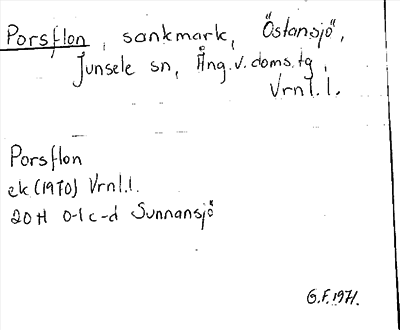 Porsflon, sankmark, Östansjö,
Junsele sn, Ång.v.doms.tg,
Vrnl.l.
Porsflon
ek (1970) Vrnl.l.
20H 0-1 c-d Sunnansjö
G.F. 1971.